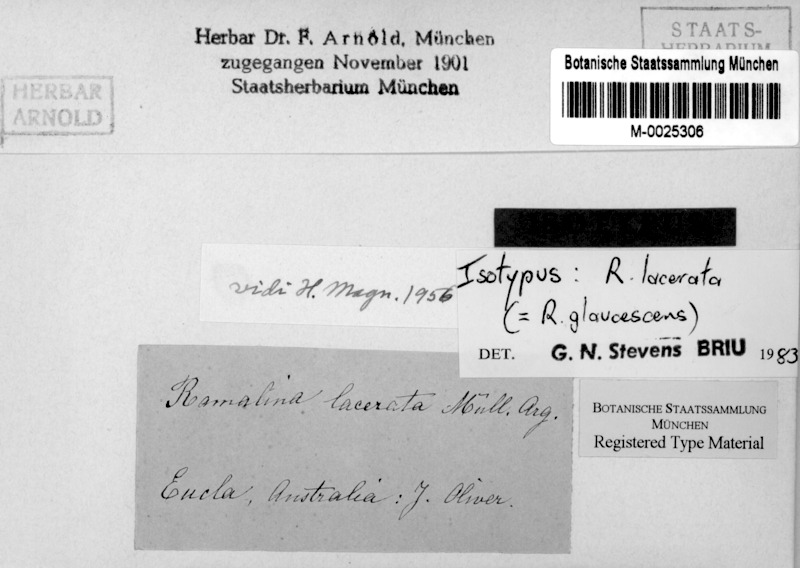 Herbar Dr. F. Arnold, München
zugegangen November 1901
Staatsherbarium München
STAATS-
HERBARIUM
HERBAR
ARNOLD
Botanische Staatssammlung München
M-0025306
vidi H. Magn. 1956
Isotypus: R. lacerata
(= R. glaucescens)
DET. G. N. Stevens BRIU 1983
Ramalina lacerata Müll. Arg.
Eucla, Australia: J. Oliver.
BOTANISCHE STAATSSAMMLUNG
MÜNCHEN
Registered Type Material